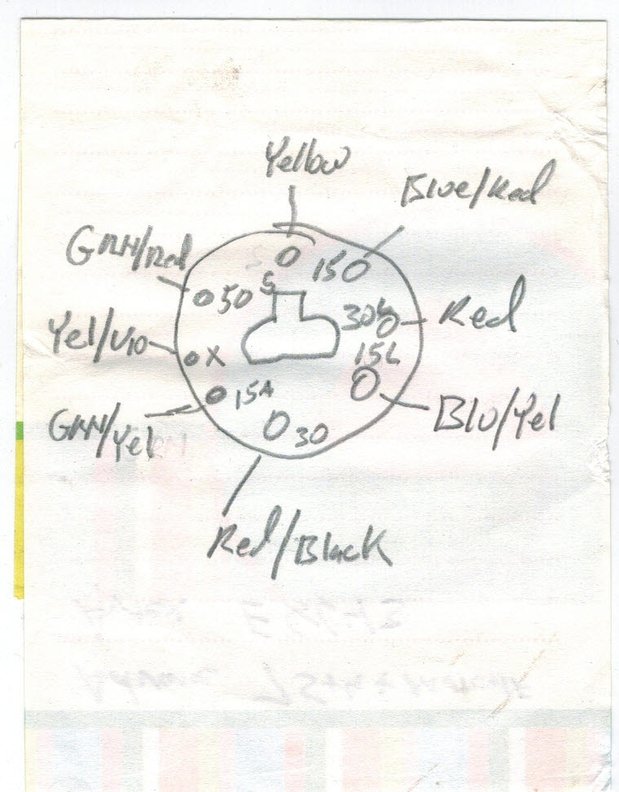 Yellow
Blue/Red
GRN/Red
S
15
50
Red
Yel/Vio
X
15L
Blu/Yel
15A
GRN/Yel
30
Red/Black